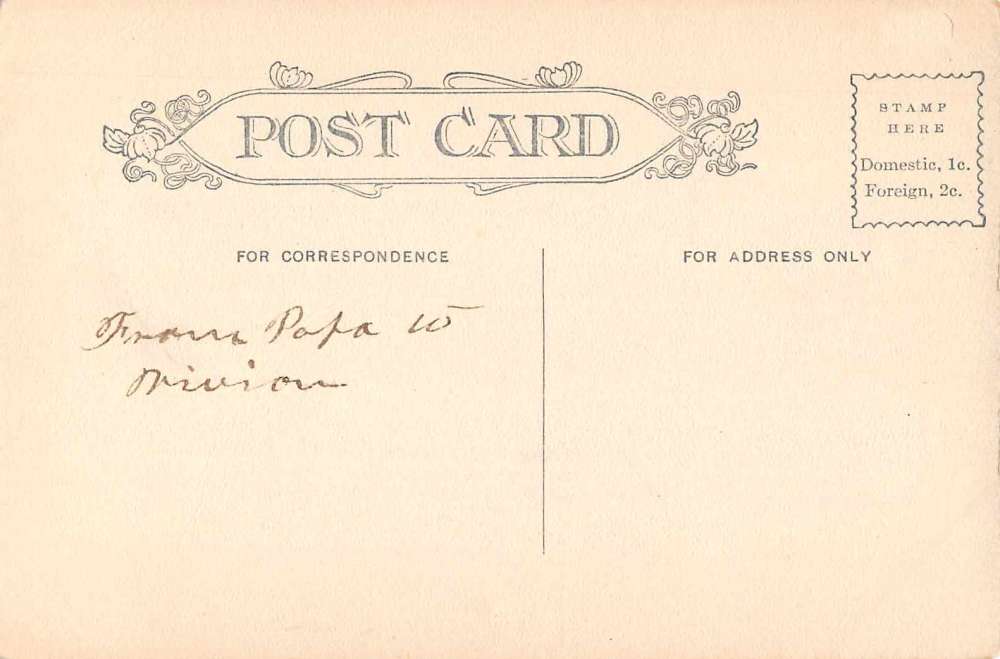 POST CARD
STAMP
HERE
Domestic, 1c.
Foreign, 2c.
FOR CORRESPONDENCE
FOR ADDRESS ONLY
From Papa to